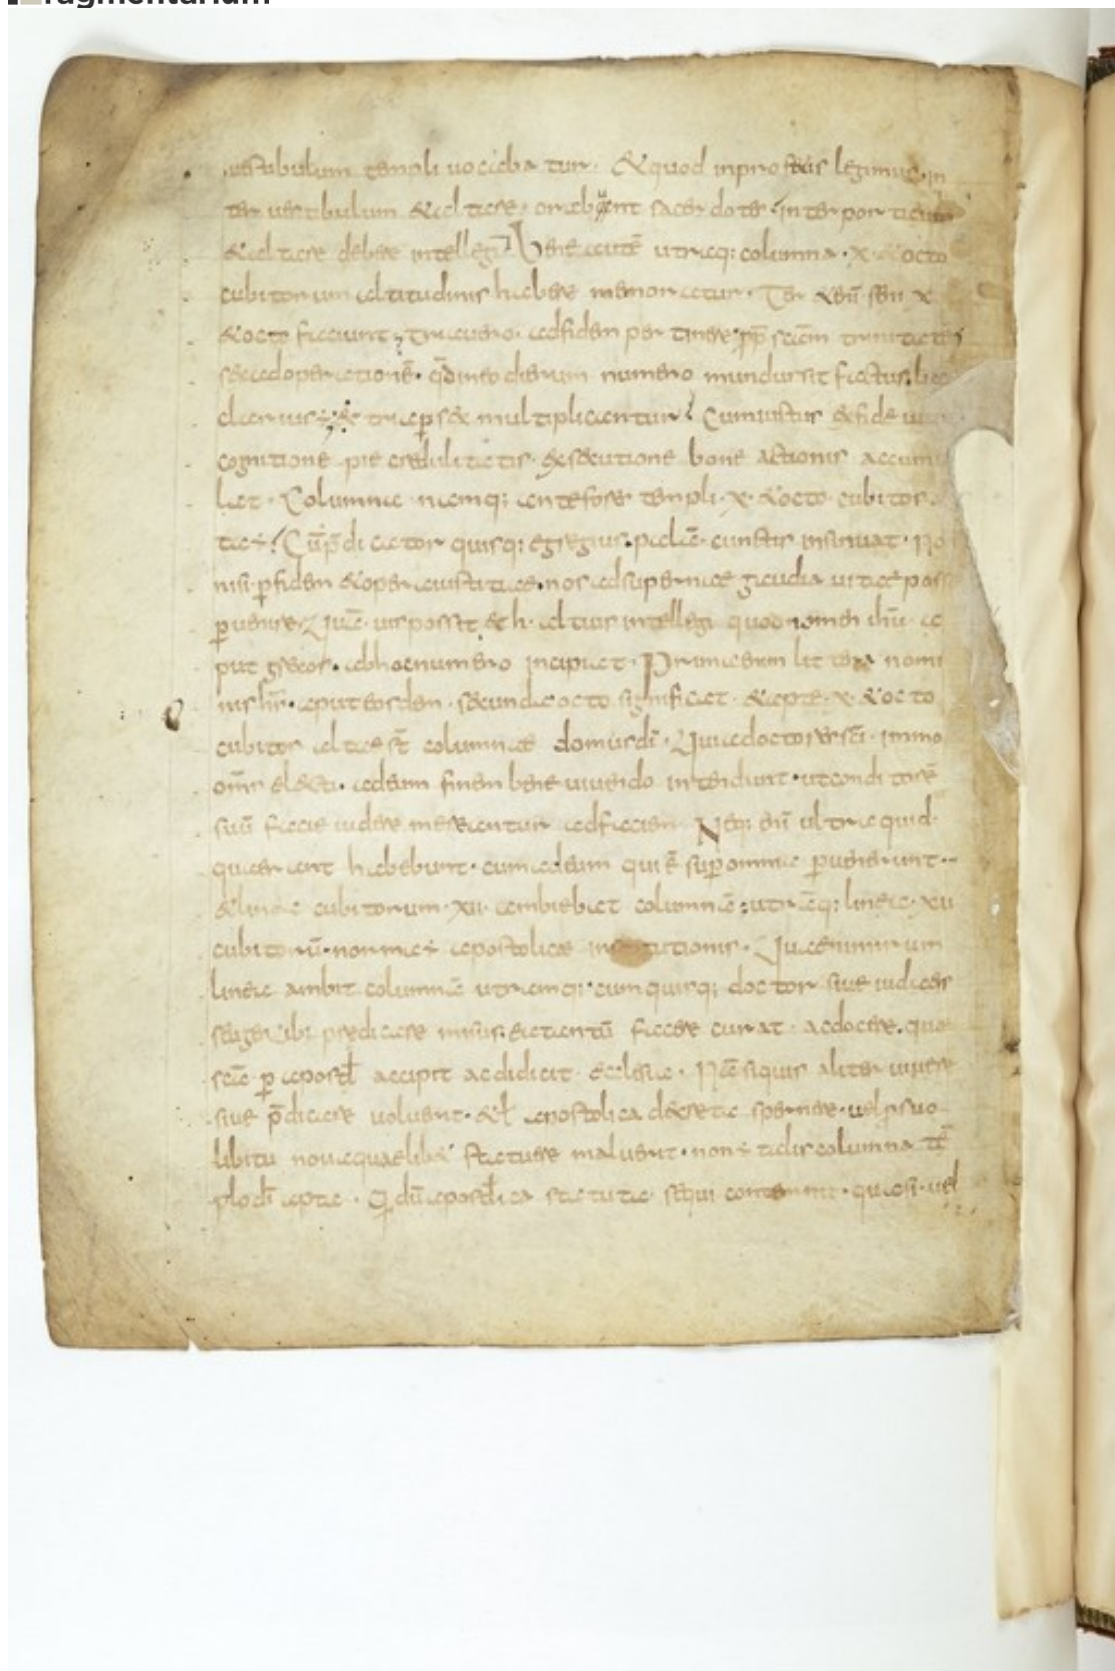 ragmentarium
uestibulum templi uocaba tur. &quod inprofetis legimus. in
ter uestibulum &altare. orabant sacerdotes. inter porticum
&altare debere intellegi Bene autē utraq; columna. x. &octo
cubitorum altitudinis habere memoratur. Ter &enī seni x
&octo faciunt; tria uero. adfidem pertinere. ꝓp̄ scām trinitatē
sex adoperationē. qd̄ ineo dierum numero mundus sit factus.
clarius÷; & tria p̱ sex multiplicantur? Cumiustus exfide
cognitione pie credulitatis. &secutione bone actionis accumu
lat. Columnae namq; ante fores templi. x. &octo cubitor.
tae÷? Cūp̄dicator quisq; egregius. palā. cunctis insinuat. No
nisi p̱fidem &opera iustitiae. nos adsupernae gaudia uitae posse
p̱uenire. Quā uis possit & h. altius intellegi quod nomen ihū. a
put grecos. abhocnumero incipiat. Prima enim littera nomi
nis ihū. aput eosdem. secunda octo significat. &apte. x. &octo
cubitos altae st̄ columnae domus dī. Quia doctores scī. immo
om̄s electi. adeum finem bene uiuendo intendunt. ut conditorē
suū facie uidere mereantur adfaciem Neq; enī ultra quid.
quaerant habebunt. cum adeum qui ē sup̱ omnia p̱uenerunt.
&linea cubitorum. xii. ambiebat columnā; utrāq; linea. xii
cubitorū. norma÷ apostolicae institutionis. Quae nimirum
linea ambit columnā utramq; cum quisq; doctor siue iudaeis
seu gentibus predicare missus. ea tantū facere curat. ac docere. quae
scā p̱ apostl̄ accipit ac didicit. ecclesia. Nā siquis aliter uiuere
siue p̄dicare voluerit. &l̄ apostolica decreta spernere. uel p̱ suo
libitu noua quaelib& statuere maluerit. non÷ talis columna tē
plo dī apta. Q dū apostl̄ica statuta sequi contemnit. quasi. uel